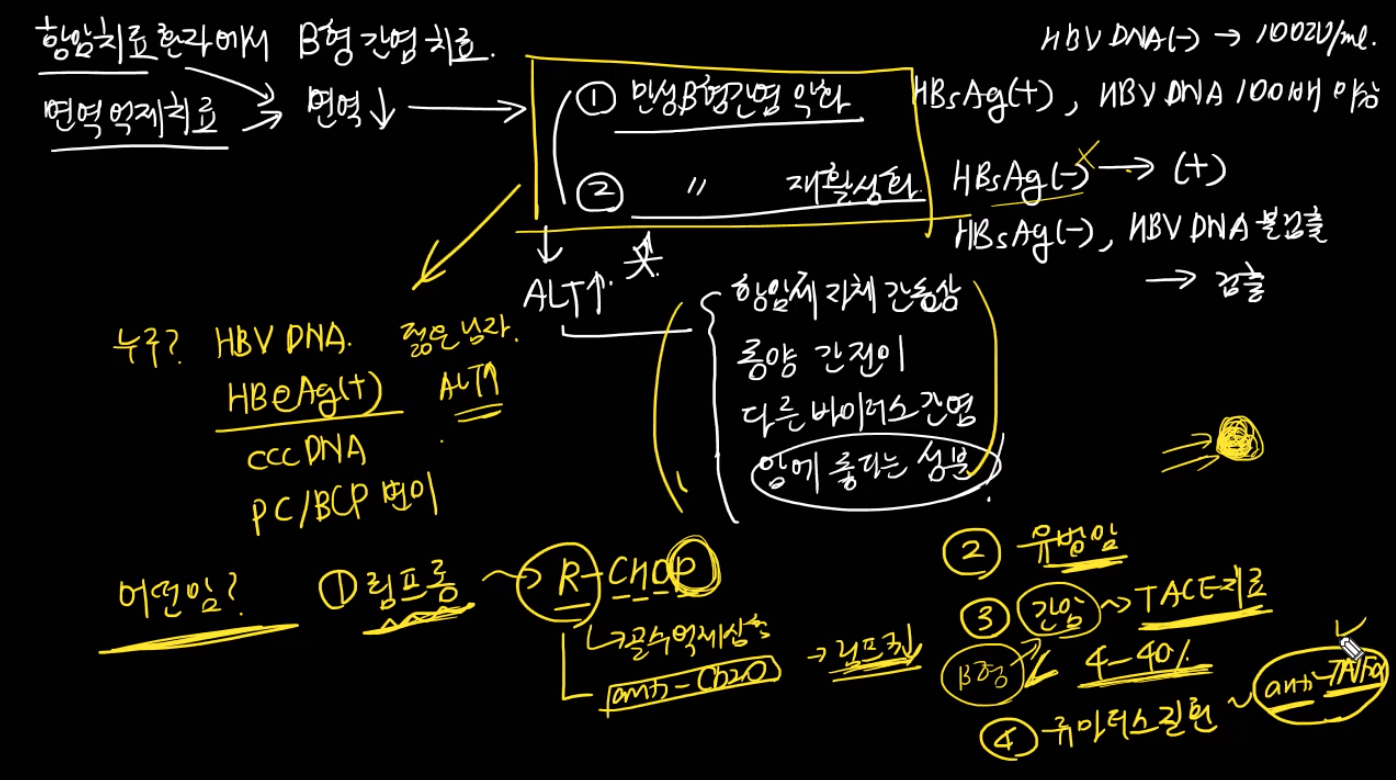 항암치료환자에서 B형간염치료.
면역억제치료 → 면역↓ →
① 만성B형간염 악화
② 〃 재활성화
HBV DNA(-) → 100IU/ml.
HBsAg(+), HBV DNA 100배 이상
HBsAg(-) → (+)
HBsAg(-), HBV DNA 불검출
→ 검출
ALT↑.
항암제 자체 간손상
종양 간전이
다른 바이러스간염
암에 좋다는 성분
누구? HBV DNA. 젊은남자.
HBeAg(+) ALT↑
cccDNA
PC/BCP 변이
어떤암? ①림프종 → R-CHOP
골수억제심함
anti-Cb20 → 림프구
② 유방암
③ 간암 ~ TACE치료
B형 4-40%
④ 류마티스질환 ~ anti-TNFα